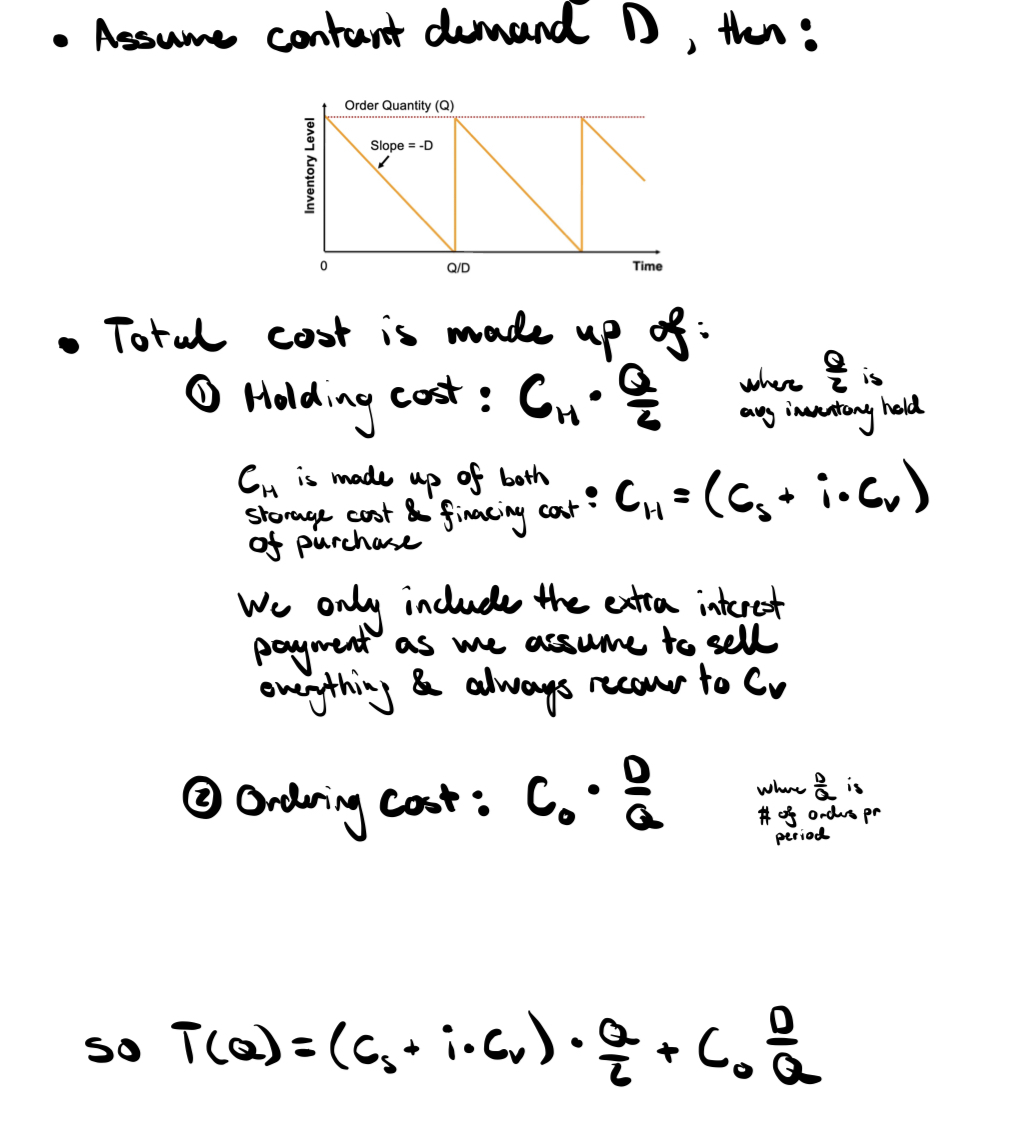 • Assume contant demand D, then:
Order Quantity (Q)
Slope = -D
Inventory Level
0
Q/D
Time
• Total cost is made up of:
① Holding cost: C_H · Q/2
where Q/2 is
avg inventory hold
C_H is made up of both
storage cost & finacing cost: C_H = (C_s + i·C_v)
of purchase
We only include the extra interest
payment as we assume to sell
everything & always recover to C_v
② Ordering cost: C_o · D/Q
where D/Q is
# of orders pr
period
so T(Q) = (C_s + i·C_v) · Q/2 + C_o D/Q